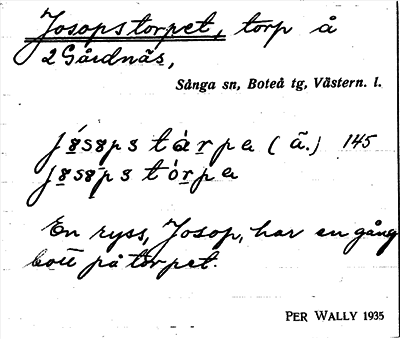 Josopstorpet, torp å
2 Gårdnäs,
Sånga sn, Boteå tg, Västern. l.
jósops tàrpa (ã.) 145
josops tórpa
En ryss, Josop, har en gång
bott på torpet.
PER WALLY 1935